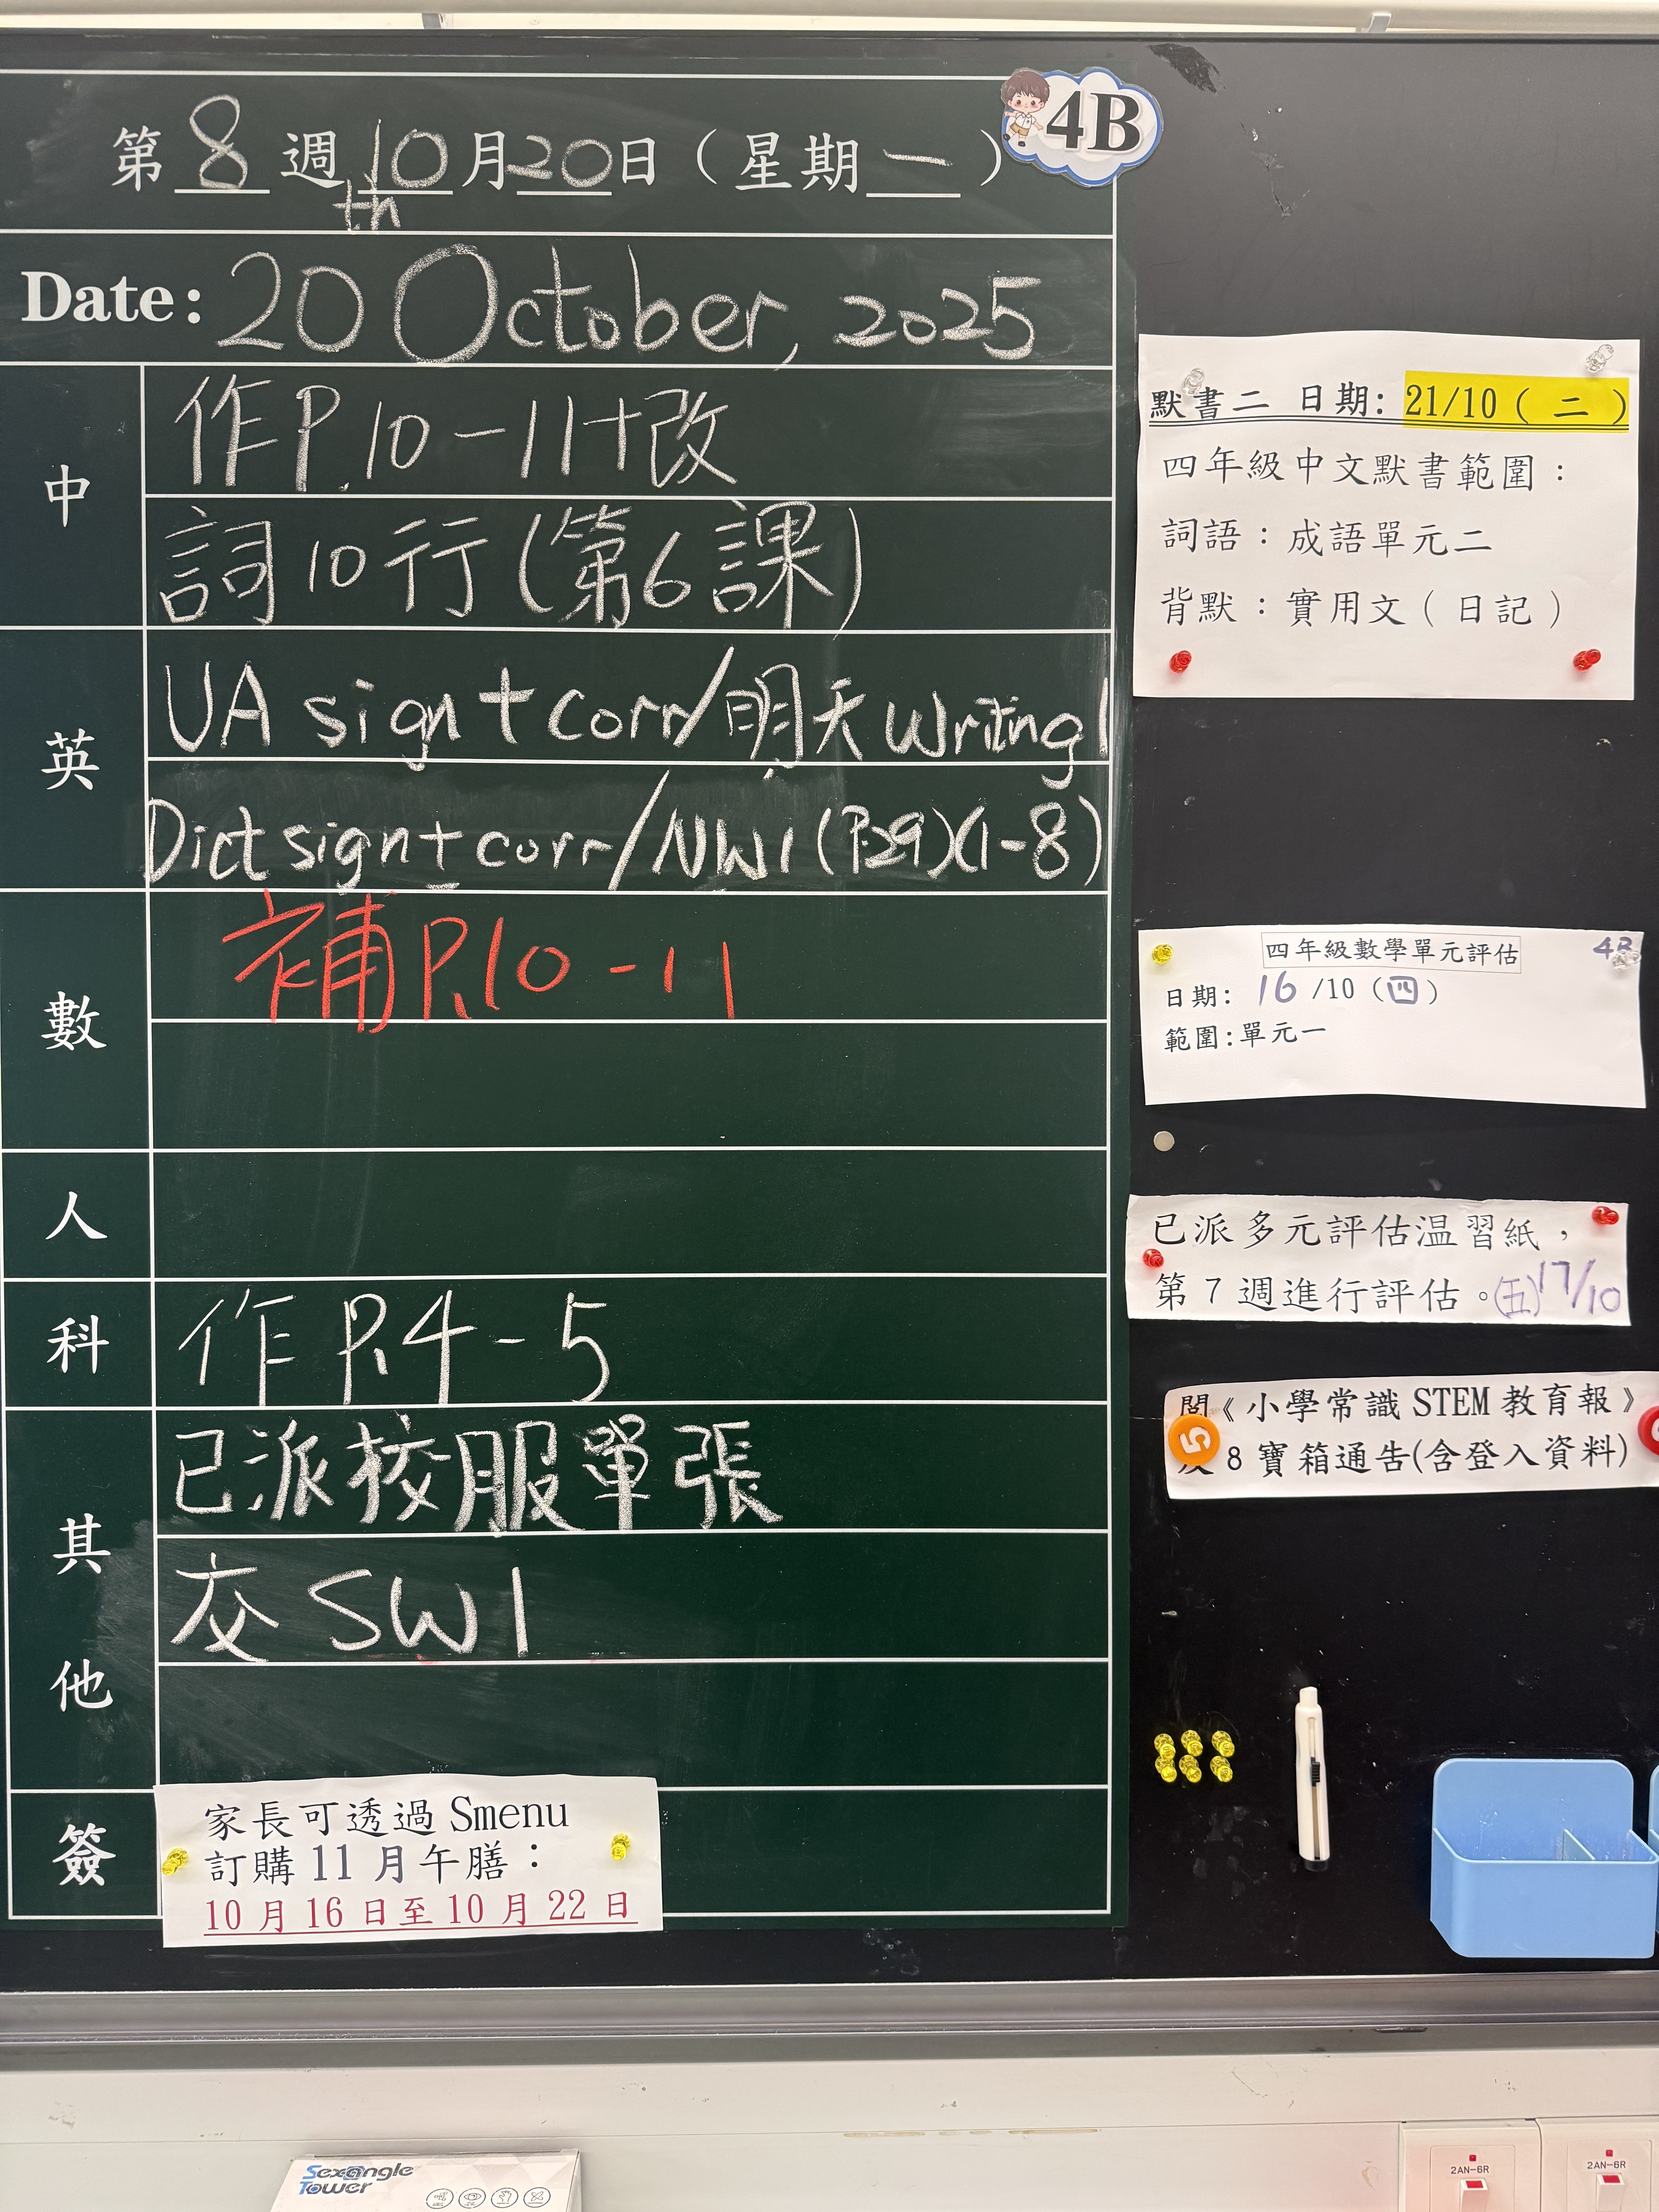 4B
第 8 週 10 月 20 日（星期 一 ）
th
Date: 20 October, 2025
中
作P.10-11+改
詞10行(第6課)
英
UA sign + corr/明天Writing1
Dict sign + corr/NW1(P.29)(1-8)
數
補P.10-11
人
科
作P.4-5
其他
已派校服單張
交SW1
簽
家長可透過 Smenu
訂購 11 月午膳：
10 月 16 日至 10 月 22 日
默書二 日期: 21/10 ( 二 )
四年級中文默書範圍：
詞語：成語單元二
背默：實用文（日記）
四年級數學單元評估
4B
日期: 16 /10 (四)
範圍:單元一
已派多元評估温習紙，
第 7 週進行評估。(五)17/10
閱《小學常識 STEM 教育報》
8 寶箱通告(含登入資料)
5
Sexangle
Tower
2AN-6R
2AN-6R